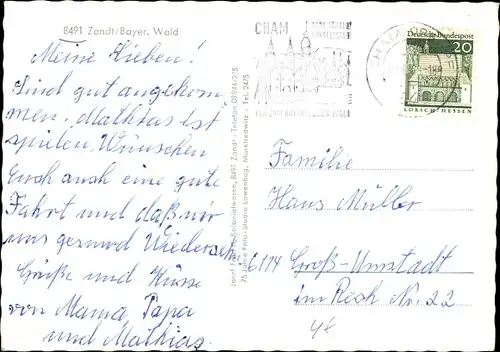 8491 Zandt/Bayer. Wald
Meine Lieben!
Sind gut angekom
men. Mathias ist
spielen. Wünschen
Euch auch eine gute
Fahrt und daß wir
uns gesund Wiederseh
Grüße und Küsse
von Mama, Papa
und Mathias.
Kolonialwaren, 8491 Zandt · Telefon 09944/275
75 Jahre Foto-Studio Lowenhag, Marktredwitz · Tel. 2475
CHAM
Deutsche Bundespost
20
LORSCH/HESSEN
Familie
Hans Müller
6114 Groß-Umstadt
im Resh Nr. 22